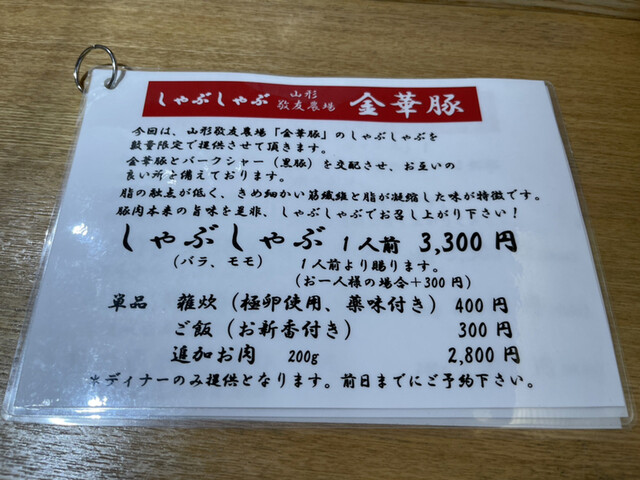 しゃぶしゃぶ 山形敬友農場 金華豚
今回は、山形敬友農場「金華豚」のしゃぶしゃぶを
数量限定で提供させて頂きます。
金華豚とバークシャー(黒豚)を交配させ、お互いの
良い所を備えております。
脂の融点が低く、きめ細かい筋繊維と脂が凝縮した味が特徴です。
豚肉本来の旨味を是非、しゃぶしゃぶでお召し上がり下さい!
しゃぶしゃぶ 1人前 3,300円
(バラ、モモ) 1人前より賜ります。
(お一人様の場合+300円)
単品 雑炊(極卵使用、薬味付き) 400円
ご飯(お新香付き) 300円
追加お肉 200g 2,800円
*ディナーのみ提供となります。前日までにご予約下さい。